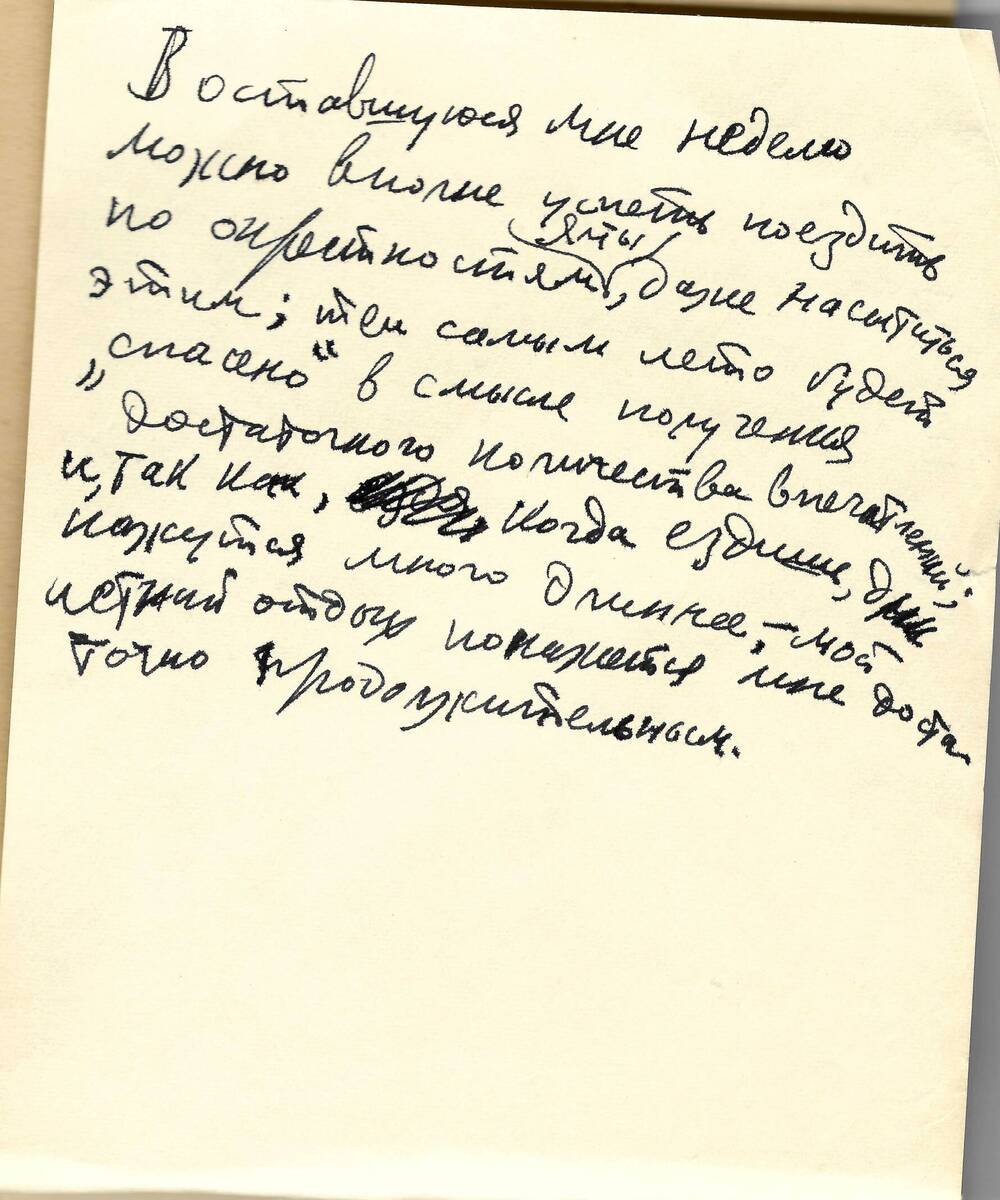 В оставшуюся мне неделю
можно вполне успеть поездить
по окрестностям Ялты, даже насытиться
этим; тем самым лето будет
„спасено“ в смысле получения
достаточного количества впечатлений;
и, так как, когда ездишь, дни
кажутся много длиннее, – мой
летний отдых покажется мне доста-
точно продолжительным.